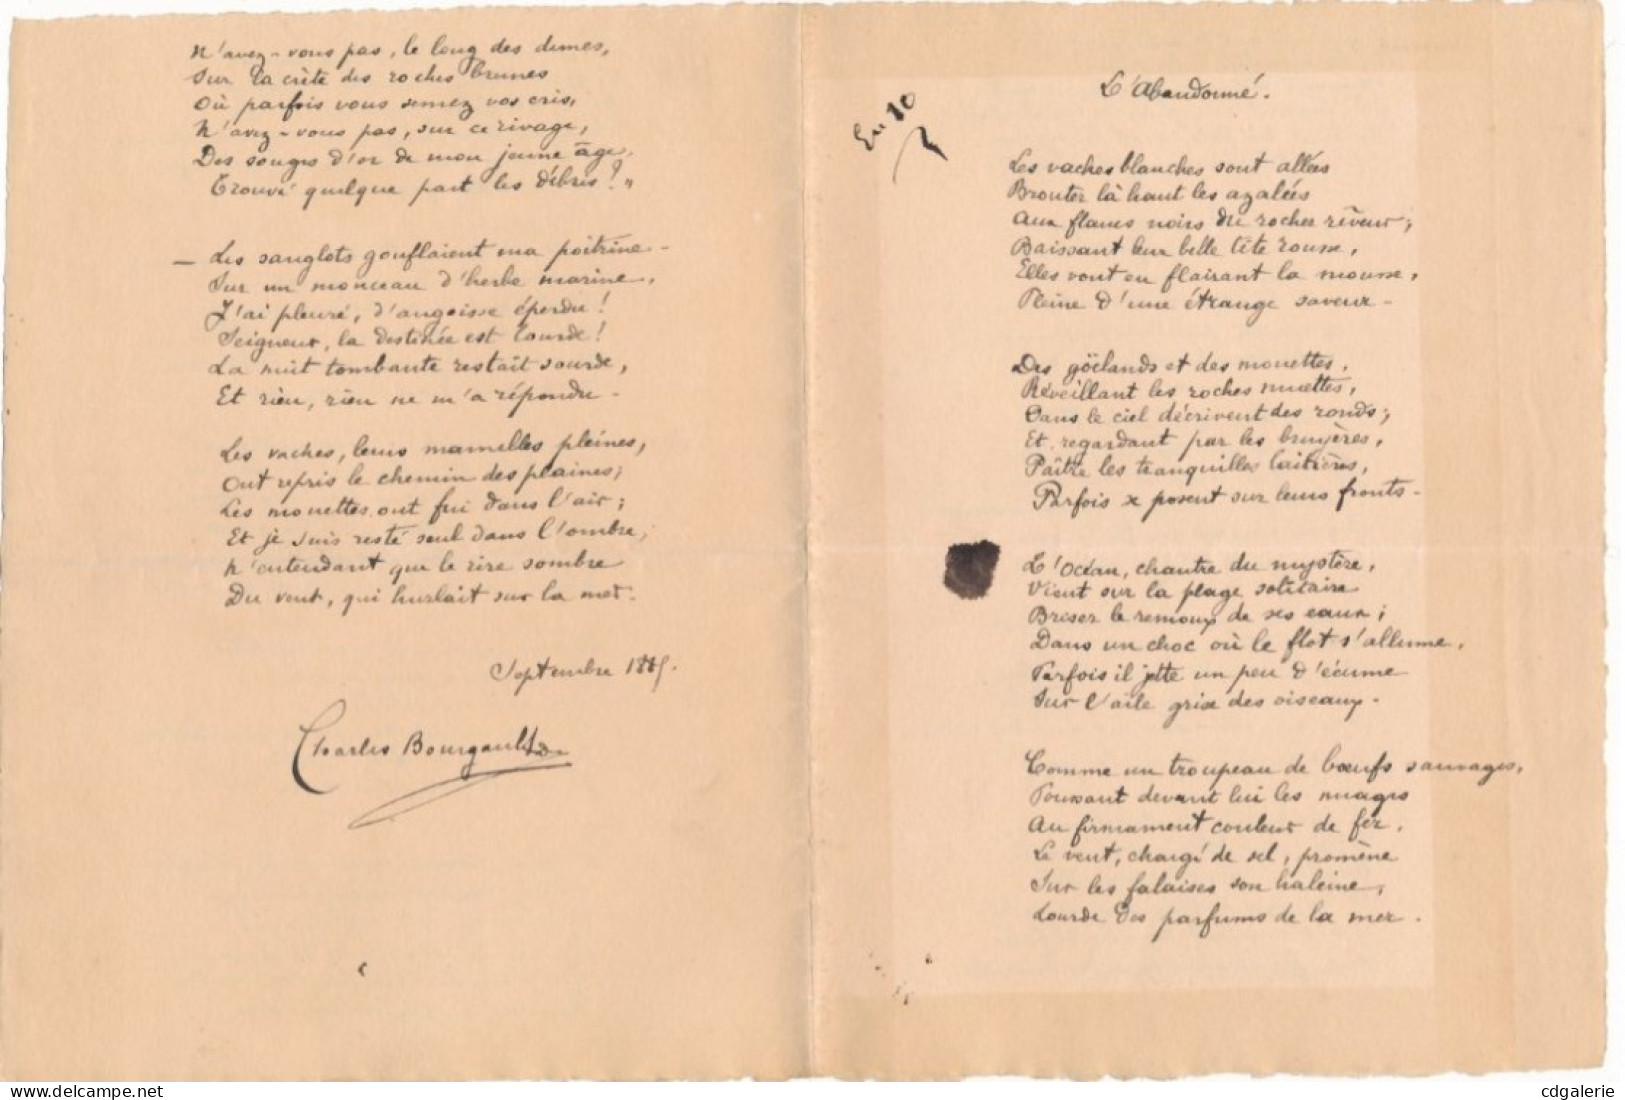 N'avez-vous pas, le long des dunes,
Sur la crète des roches brunes
Où parfois vous semez vos cris,
N'avez-vous pas, sur ce rivage,
Des songes d'or de mon jeune âge,
Trouvé quelque part les débris? "

— Les sanglots gonflaient ma poitrine -
Sur un monceau d'herbe marine,
J'ai pleuré, d'angoisse éperdu!
Seigneur, la destinée est lourde!
La nuit tombante restait sourde,
Et rien, rien ne m'a répondu -

Les vaches, leurs mamelles pleines,
Ont repris le chemin des plaines;
Les mouettes ont fui dans l'air;
Et je suis resté seul dans l'ombre,
N'entendant que le rire sombre
Du vent, qui hurlait sur la mer.

Septembre 1885.

Charles Bourgault

L'Abandonné.

En 10

Les vaches blanches sont allées
Brouter là haut les azalées
Aux flancs noirs du rocher rêveur;
Baissant leur belle tête rousse,
Elles vont en flairant la mousse,
Pleine d'une étrange saveur -

Des göelands et des mouettes,
Réveillant les roches muettes,
Dans le ciel décrivent des ronds;
Et, regardant par les bruyères,
Paître les tranquilles laitières,
Parfois se posent sur leurs fronts -

L'Océan, chantre du mystère,
Vient sur la plage solitaire
Briser le remoux de ses eaux;
Dans un choc où le flot s'allume,
Parfois il jette un peu d'écume
Sur l'aile grise des oiseaux -

Comme un troupeau de bœufs sauvages,
Poussant devant lui les nuages
Au firmament couleur de fer,
Le vent, chargé de sel, promène
Sur les falaises son haleine,
Lourde des parfums de la mer.

delcampe.net
cdgalerie